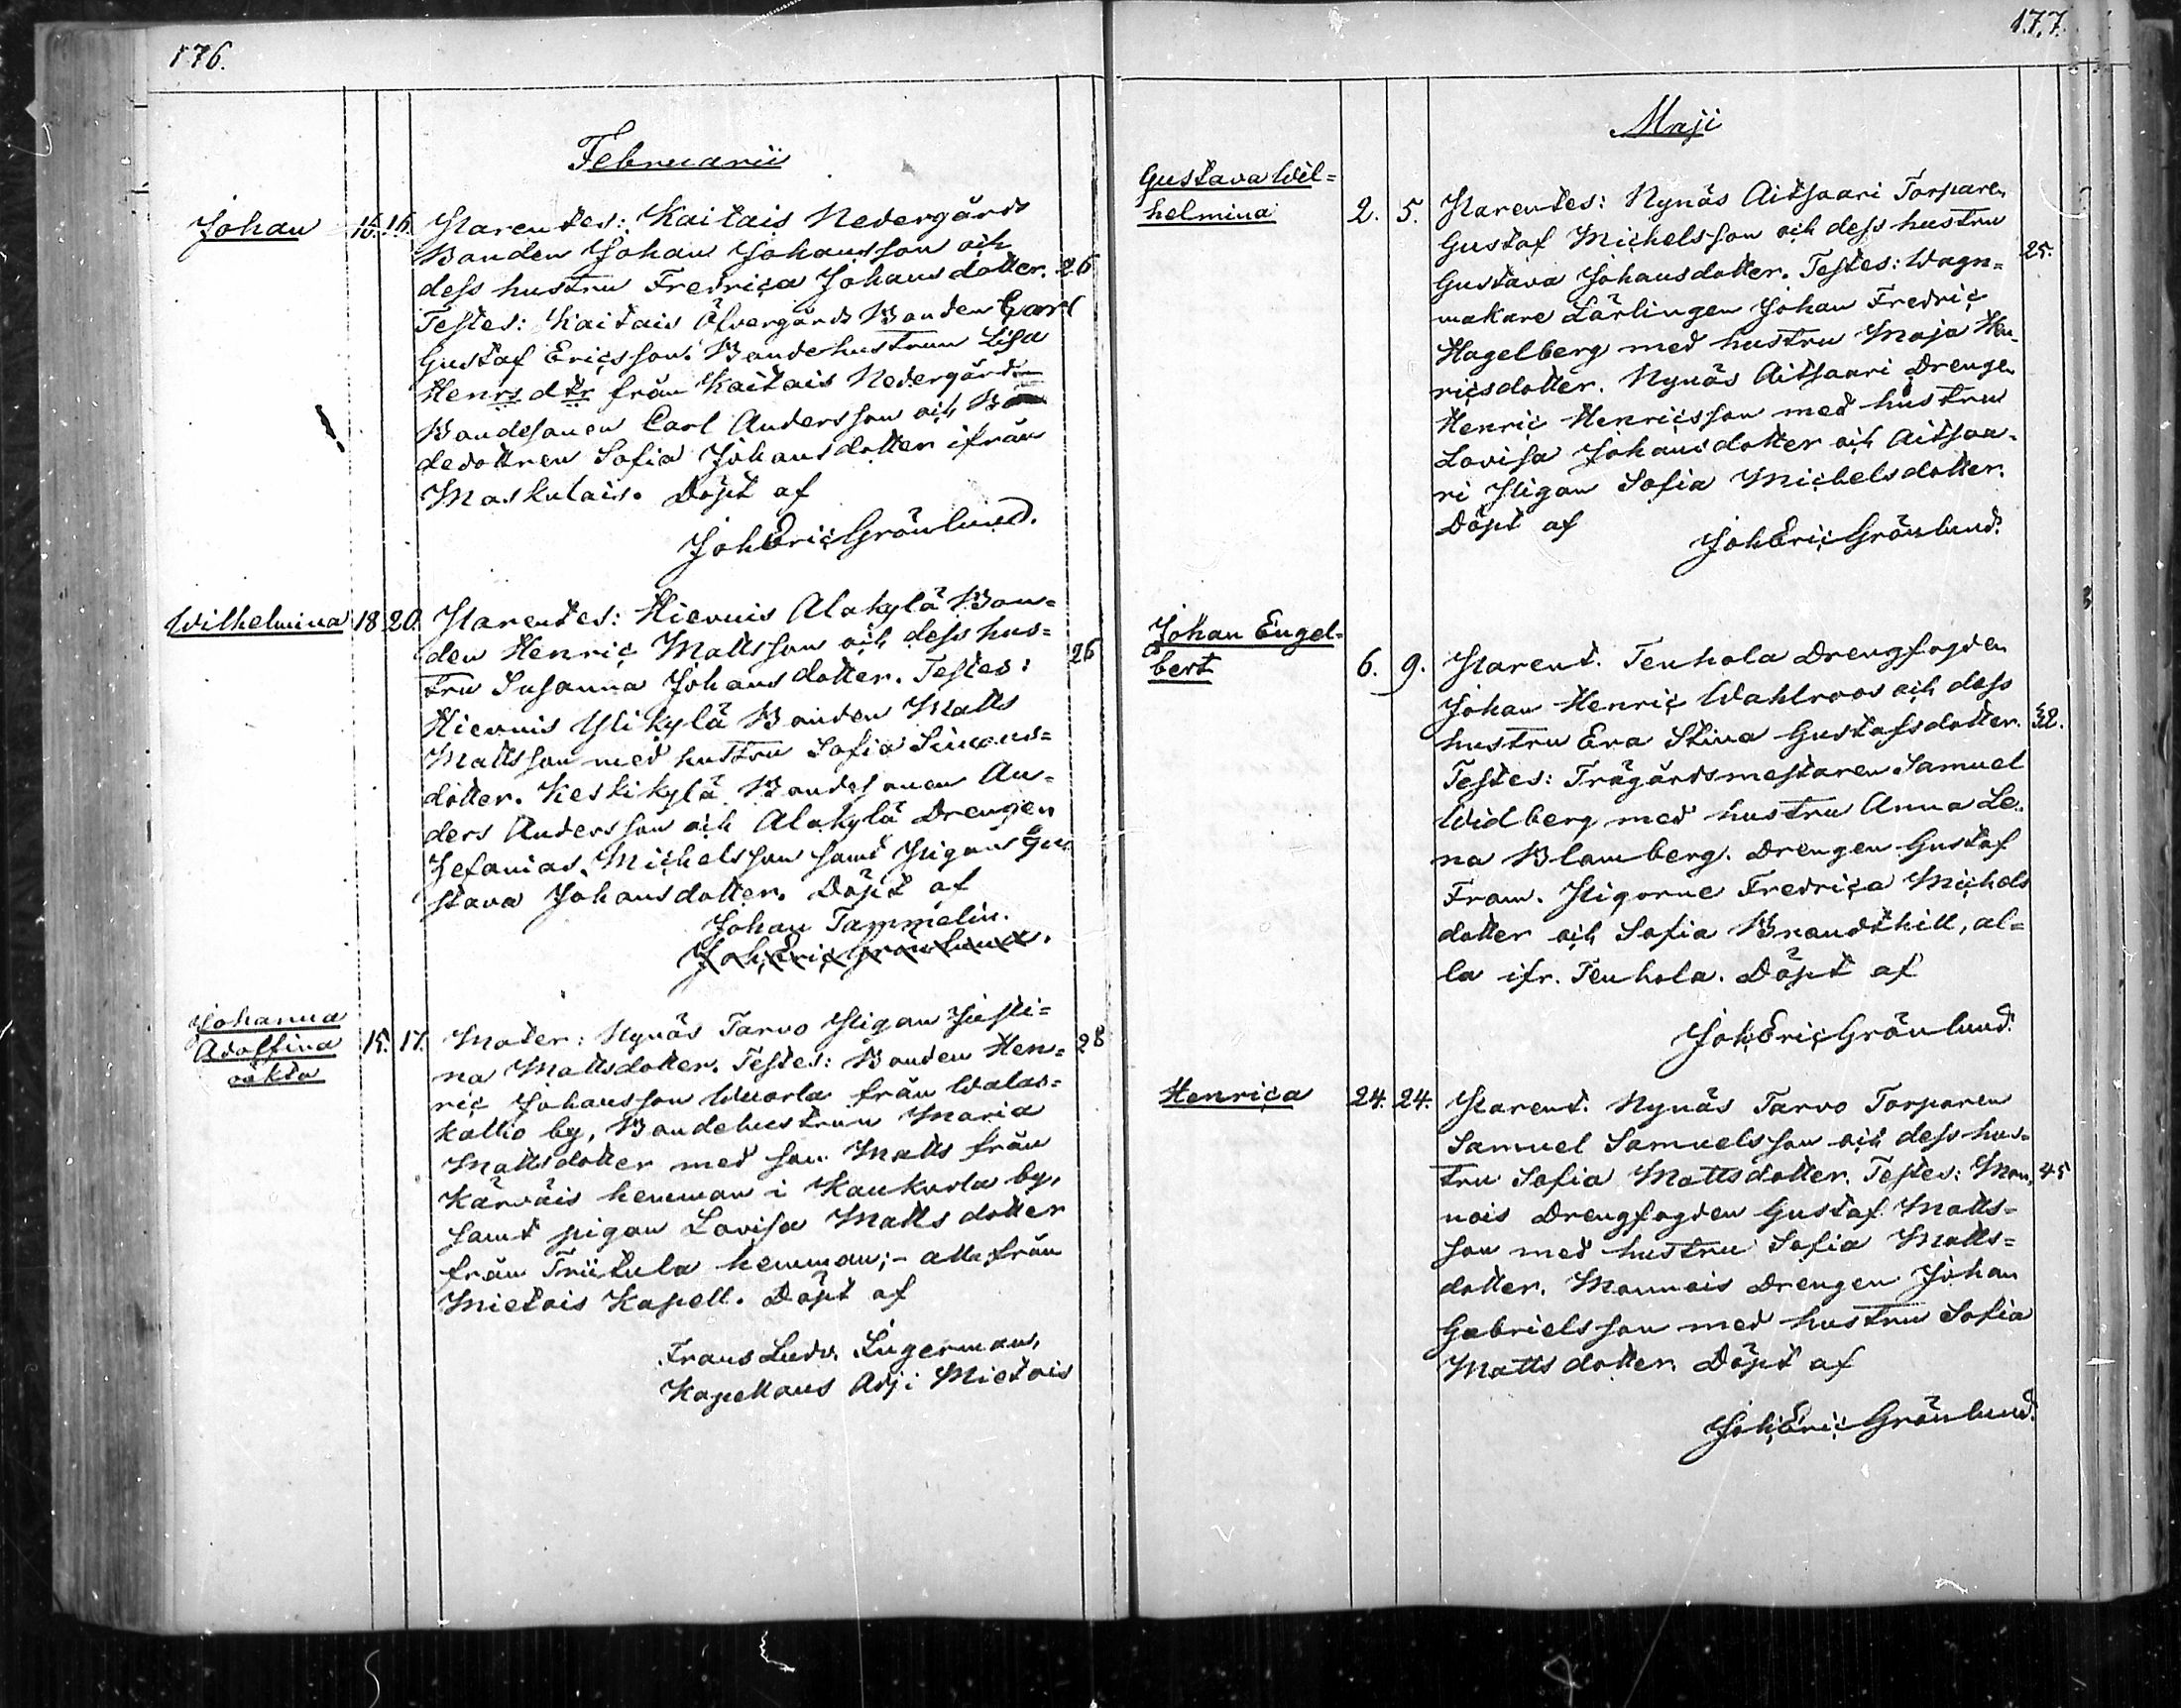 176.
Februarii
Johan 15. 16. Parentes: Kaitais Nedergårds
Bonden Johan Johansson och
dess hustru Fredrica Johansdotter. 26
Testes: Kaitais Öfvergårds Bonden Carl
Gustaf Ericsson. Bondehustrun Lisa
Henrs dtr från Kaitais Nedergård
Bondesonen Carl Andersson och Bon
dedottren Sofia Johansdotter ifrån
Maskulais. Döpt af
Joh Eric Grönlund.
Wilhelmina 18 20. Parentes: Hiervuis Alakylä Bon=
den Henric Mattsson och dess hus=
tru Susanna Johansdotter. Testes: 26
Hiervuis Ylikylä Bonden Matts
Mattsson med hustru Sofia Simons=
dotter. Keskikylä Bondesonen An=
ders Andersson och Alakylä Drengen
Zefanias Michelsson samt Pigan Gu
stava Johansdotter. Döpt af
Johan Tammelin.
Joh Eric Grönlund.
Johanna
Adolfina 15. 17. Mater: Nynäs Tarvo Pigan Justi= 28
oäkta
na Mattsdotter. Testes: Bonden Hen=
ric Johansson Wuorla från Walas=
kallio by, Bondehustrun Maria
Mattsdotter med son Matts från
Kärväis hemman i Kaukurla by,
samt pigan Lovisa Matts dotter
från Triitula hemman; - alla från
Mietois Kapell. Döpt af
Frans Ludv. Lugerman,
Kapellans Adj i Mietois
177.
Maji
Gustava Wil=
helmina 2. 5. Parentes: Nynäs Aitsaari Torparen
Gustaf Michelsson och dess hustru
Gustava Johansdotter. Testes: Wagn= 25.
makare Lärlingen Johan Fredric
Hagelberg med hustru Maja Hen
ricsdotter. Nynäs Aitsaari Drengen
Henric Henricsson med hustru
Lovisa Johansdotter och Aitsaa=
ri Pigan Sofia Michelsdotter.
Döpt af
Joh Eric Grönlund.
Johan Engel=
bert 6. 9. Parent. Tenhola Drengfogden
Johan Henric Wahlroos och dess
hustru Eva Stina Gustafsdotter. 32.
Testes: Trägårdsmestaren Samuel
Widberg med hustru Anna Le=
na Blomberg. Drengen Gustaf
Fram. Pigorne Fredrica Michels
dotter och Sofia Brandthill, al=
la ifr. Tenhola. Döpt af
Joh Eric Grönlund.
Henrica 24. 24. Parent. Nynäs Tarvo Torparen
Samuel Samuelsson och dess hus=
tru Sofia Mattsdotter. Testes: Mon= 45
nois Drengfogden Gustaf Matts=
son med hustru Sofia Matts=
dotter. Monnois Drengen Johan
Gabrielsson med hustru Sofia
Matts dotter. Döpt af
Joh Eric Grönlund.